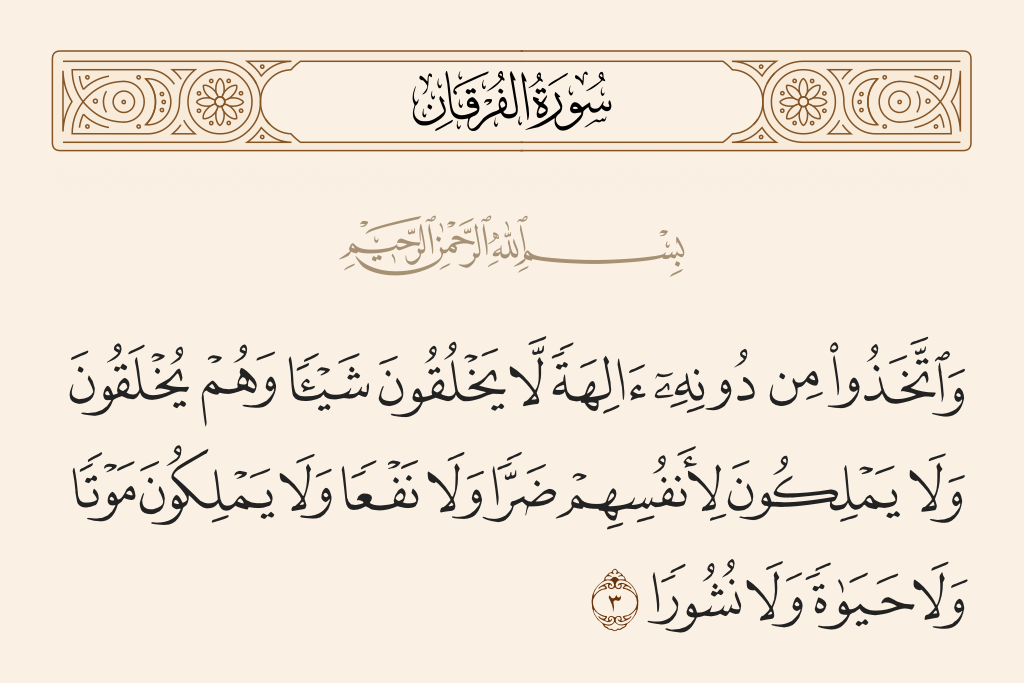 سُورَةُ الفُرْقَانِ
بِسْمِ ٱللَّهِ ٱلرَّحْمَٰنِ ٱلرَّحِيمِ
وَٱتَّخَذُوا۟ مِن دُونِهِۦٓ ءَالِهَةً لَّا يَخْلُقُونَ شَيْـًٔا وَهُمْ يُخْلَقُونَ
وَلَا يَمْلِكُونَ لِأَنفُسِهِمْ ضَرًّا وَلَا نَفْعًا وَلَا يَمْلِكُونَ مَوْتًا
وَلَا حَيَوٰةً وَلَا نُشُورًا ٣